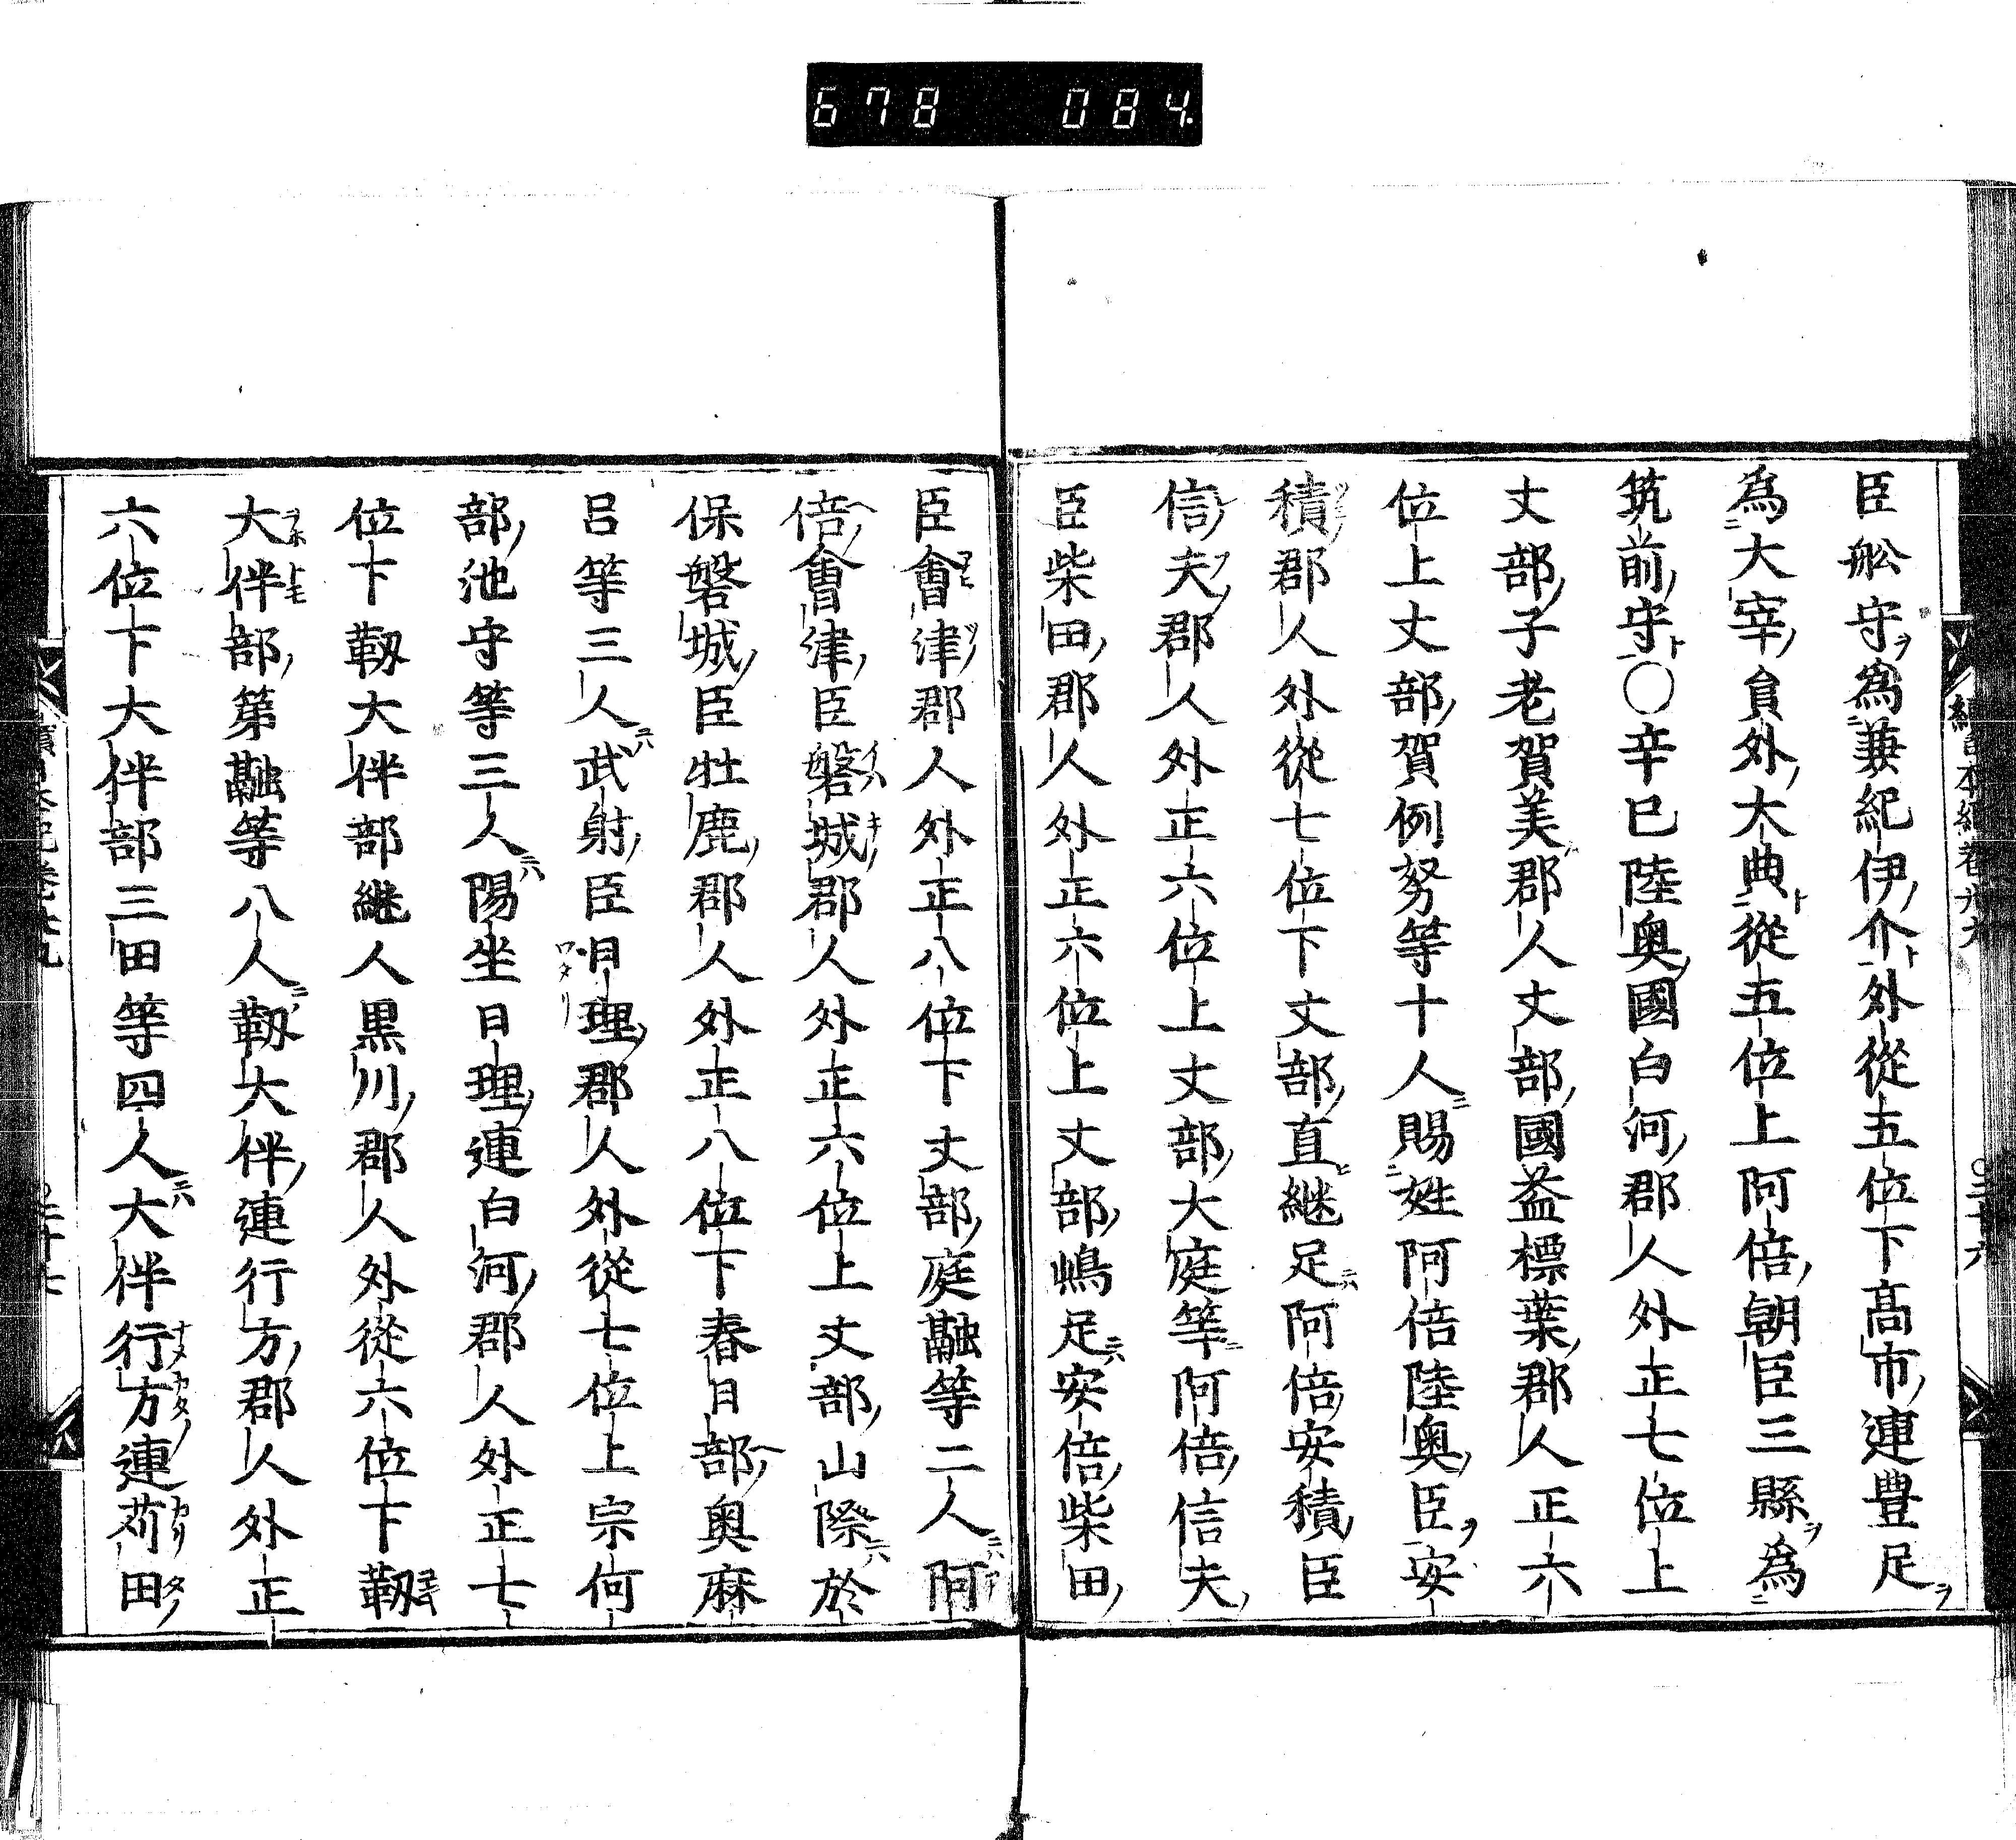 678 084
臣舩守爲兼紀伊介外從五位下高市連豊足
爲大宰員外大典從五位上阿倍朝臣三縣爲
筑前守〇辛巳陸奥國白河郡人外正七位上
丈部子老賀美郡人丈部國益標葉郡人正六
位上丈部賀例努等十人賜姓阿倍陸奥臣安
積郡人外從七位下丈部直継足阿倍安積臣
信夫郡人外正六位上丈部大庭等阿倍信夫
臣柴田郡人外正六位上丈部嶋足安倍柴田
臣會津郡人外正八位下丈部庭虫等二人阿
倍會津臣磐城郡人外正六位上丈部山際於
保磐城臣牡鹿郡人外正八位下春日部奥麻
呂等三人武射臣曰理郡人外從七位上宗何
部池守等三人陽坐日理連白河郡人外正七
位下靱大伴部継人黒川郡人外從六位下靱
大伴部第虫等八人靱大伴連行方郡人外正
六位下大伴部三田等四人大伴行方連苅田